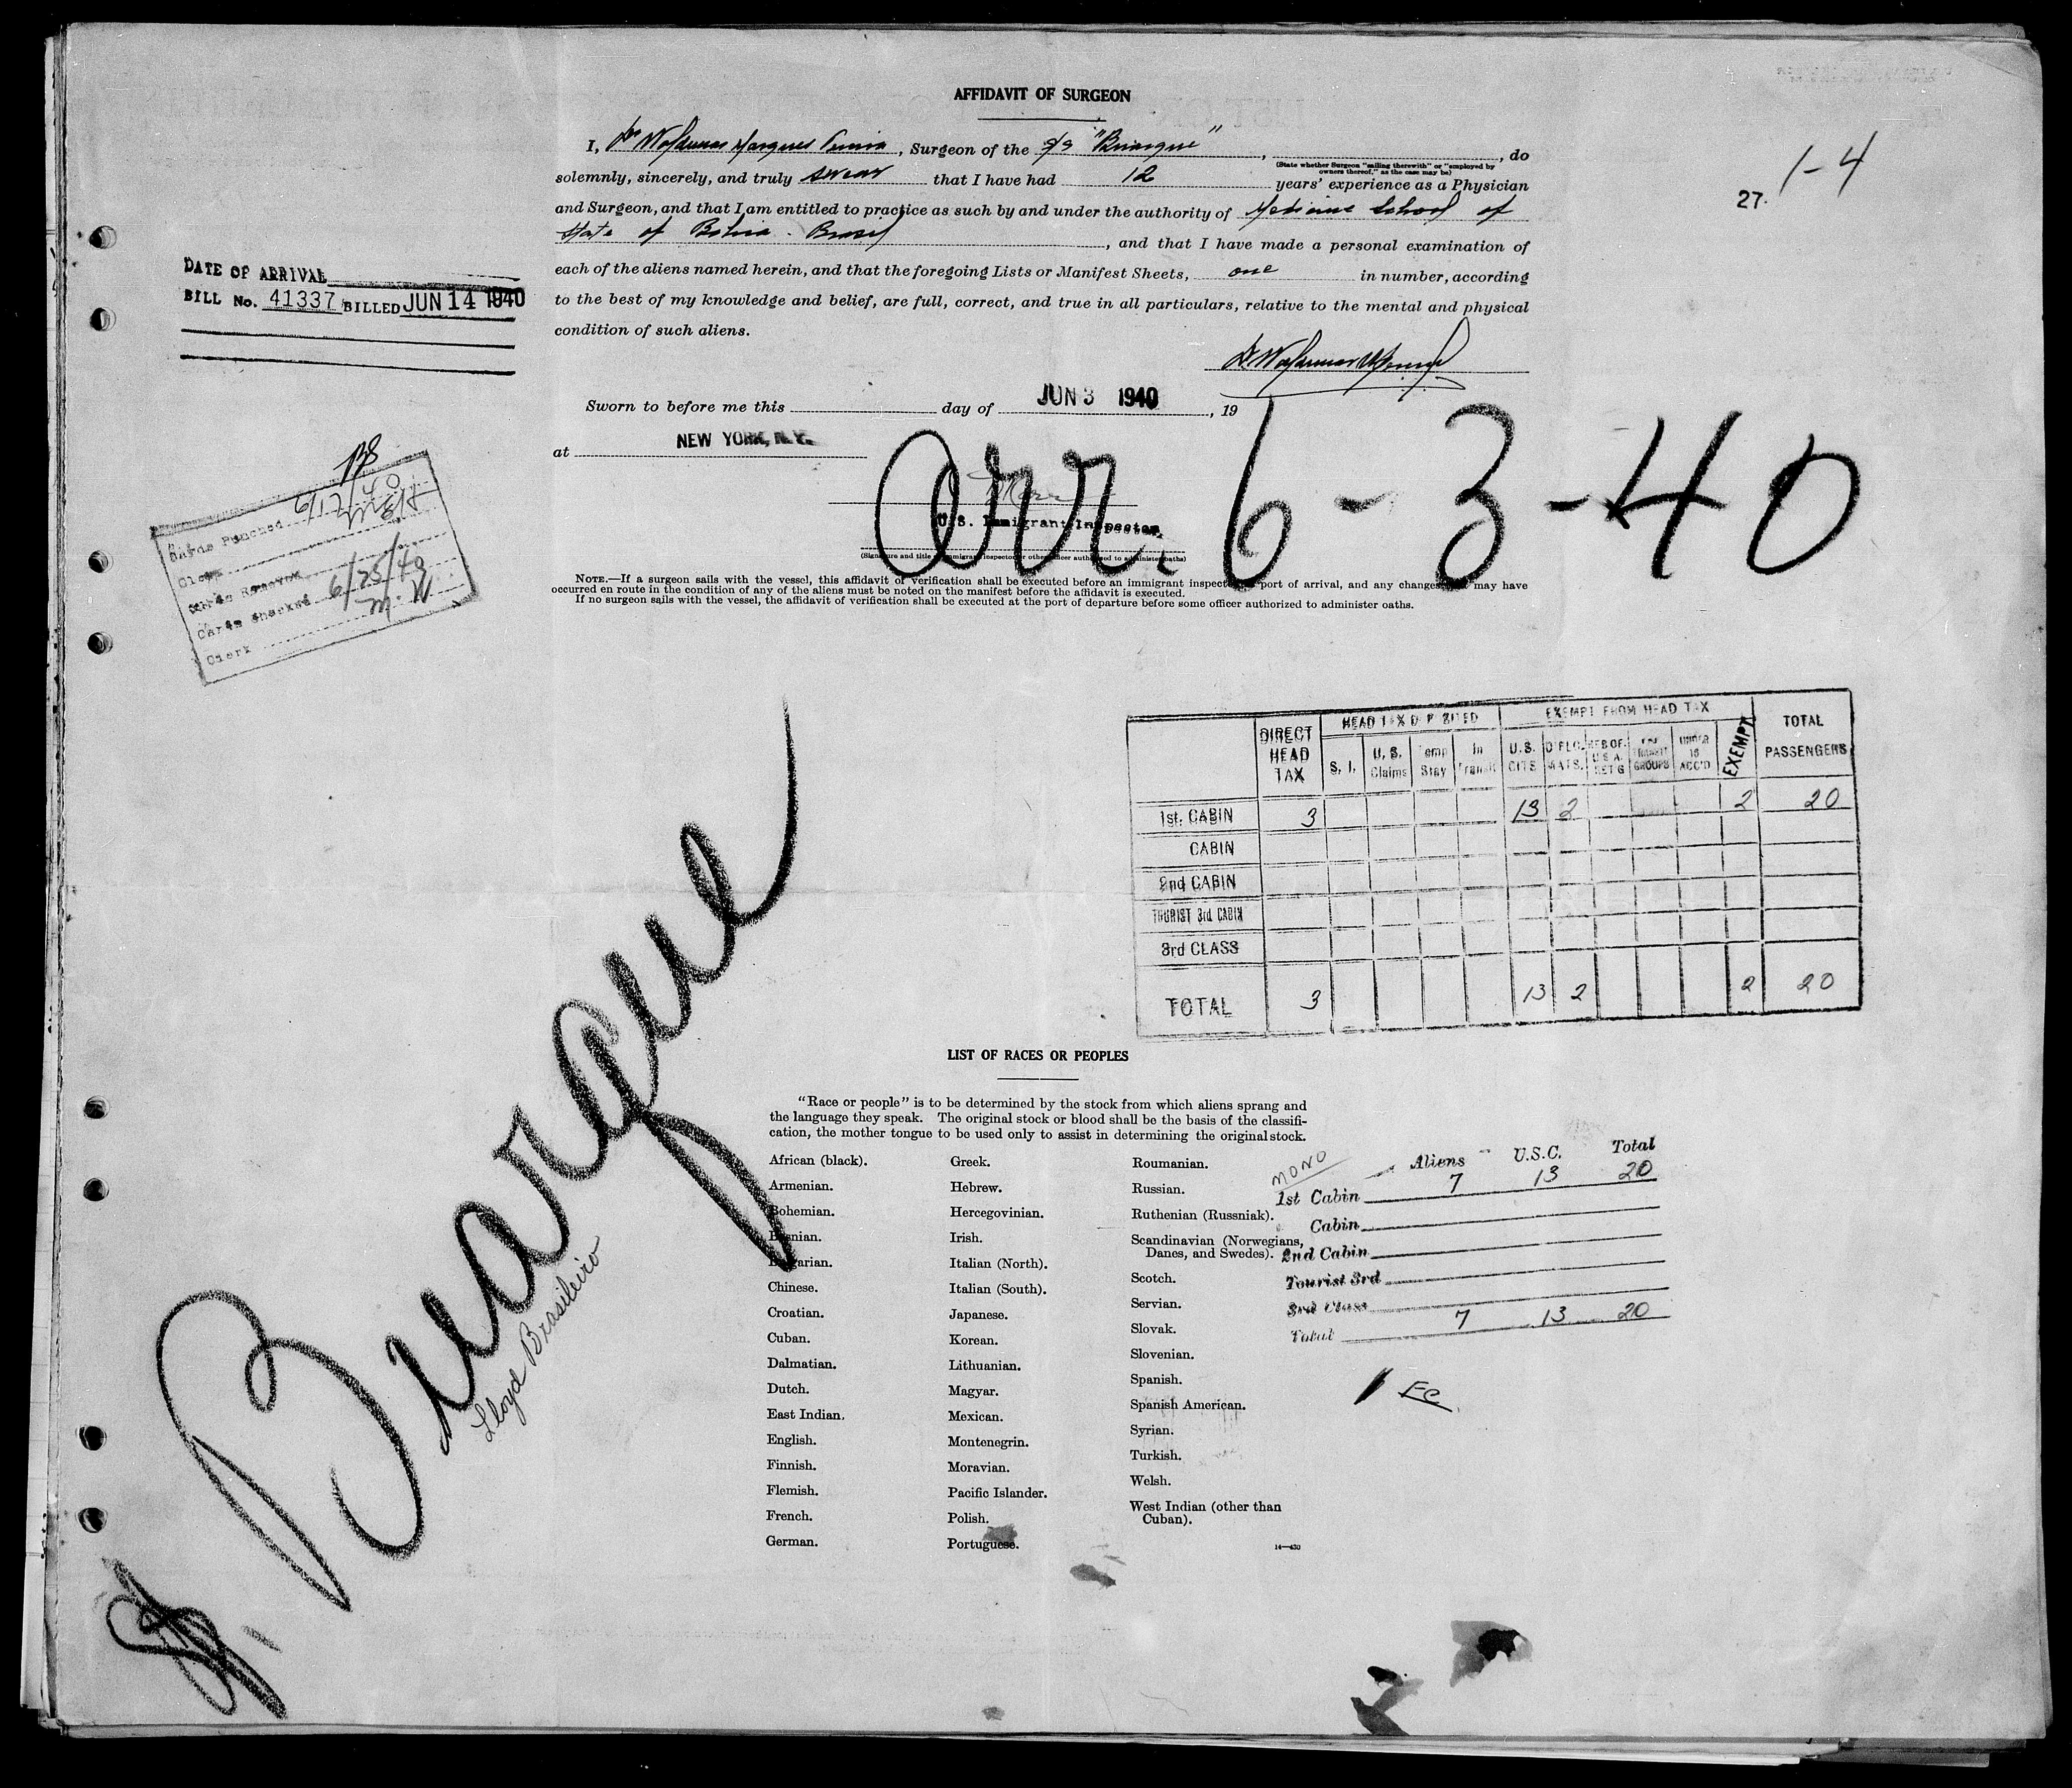 AFFIDAVIT OF SURGEON
I, Dr Waldemar Marques, Surgeon of the S/S "Buarque", , do
(State whether Surgeon "sailing therewith" or "employed by owners thereof," as the case may be)
solemnly, sincerely, and truly swear that I have had 12 years' experience as a Physician
and Surgeon, and that I am entitled to practice as such by and under the authority of Medicine School of
State of Bahia - Brasil, and that I have made a personal examination of
each of the aliens named herein, and that the foregoing Lists or Manifest Sheets, one in number, according
to the best of my knowledge and belief, are full, correct, and true in all particulars, relative to the mental and physical
condition of such aliens.
27. 1-4
DATE OF ARRIVAL
BILL No. 41337 BILLED JUN 14 1940
Dr Waldemar
Sworn to before me this day of JUN 3 1940, 19
at NEW YORK, N.Y.
arr. 6-3-40
U.S. Immigrant Inspector.
(Signature and title of immigrant inspector or other officer authorized to administer oaths)
Cards Punched 6/17/40
Clerk
Cards Removed
Cards Checked 6/25/40
Clerk M.W.
NOTE.—If a surgeon sails with the vessel, this affidavit of verification shall be executed before an immigrant inspector port of arrival, and any changes may have
occurred en route in the condition of any of the aliens must be noted on the manifest before the affidavit is executed.
If no surgeon sails with the vessel, the affidavit of verification shall be executed at the port of departure before some officer authorized to administer oaths.
DIRECT HEAD TAX
HEAD TAX DEPOSITED
EXEMPT FROM HEAD TAX
TOTAL PASSENGERS
S. I. U. S. Claims Temp Stay In Transit U.S. CITS. DIPLO-MATS. RES OF U S A. RET'G TRANSIT GROUPS UNDER 16 ACC'D EXEMPT
1st. CABIN 3 13 2 2 20
CABIN
2nd CABIN
TOURIST 3rd CABIN
3rd CLASS
TOTAL 3 13 2 2 20
S. S. Buarque
Lloyd Brasileiro
LIST OF RACES OR PEOPLES
"Race or people" is to be determined by the stock from which aliens sprang and
the language they speak. The original stock or blood shall be the basis of the classifi-
cation, the mother tongue to be used only to assist in determining the original stock.
African (black).
Armenian.
Bohemian.
Bosnian.
Bulgarian.
Chinese.
Croatian.
Cuban.
Dalmatian.
Dutch.
East Indian.
English.
Finnish.
Flemish.
French.
German.
Greek.
Hebrew.
Hercegovinian.
Irish.
Italian (North).
Italian (South).
Japanese.
Korean.
Lithuanian.
Magyar.
Mexican.
Montenegrin.
Moravian.
Pacific Islander.
Polish.
Portuguese.
Roumanian.
Russian.
Ruthenian (Russniak).
Scandinavian (Norwegians,
Danes, and Swedes).
Scotch.
Servian.
Slovak.
Slovenian.
Spanish.
Spanish American.
Syrian.
Turkish.
Welsh.
West Indian (other than
Cuban).
14—430
MONO
Aliens U.S.C. Total
1st Cabin 7 13 20
Cabin
2nd Cabin
Tourist 3rd
3rd Class
Total 7 13 20